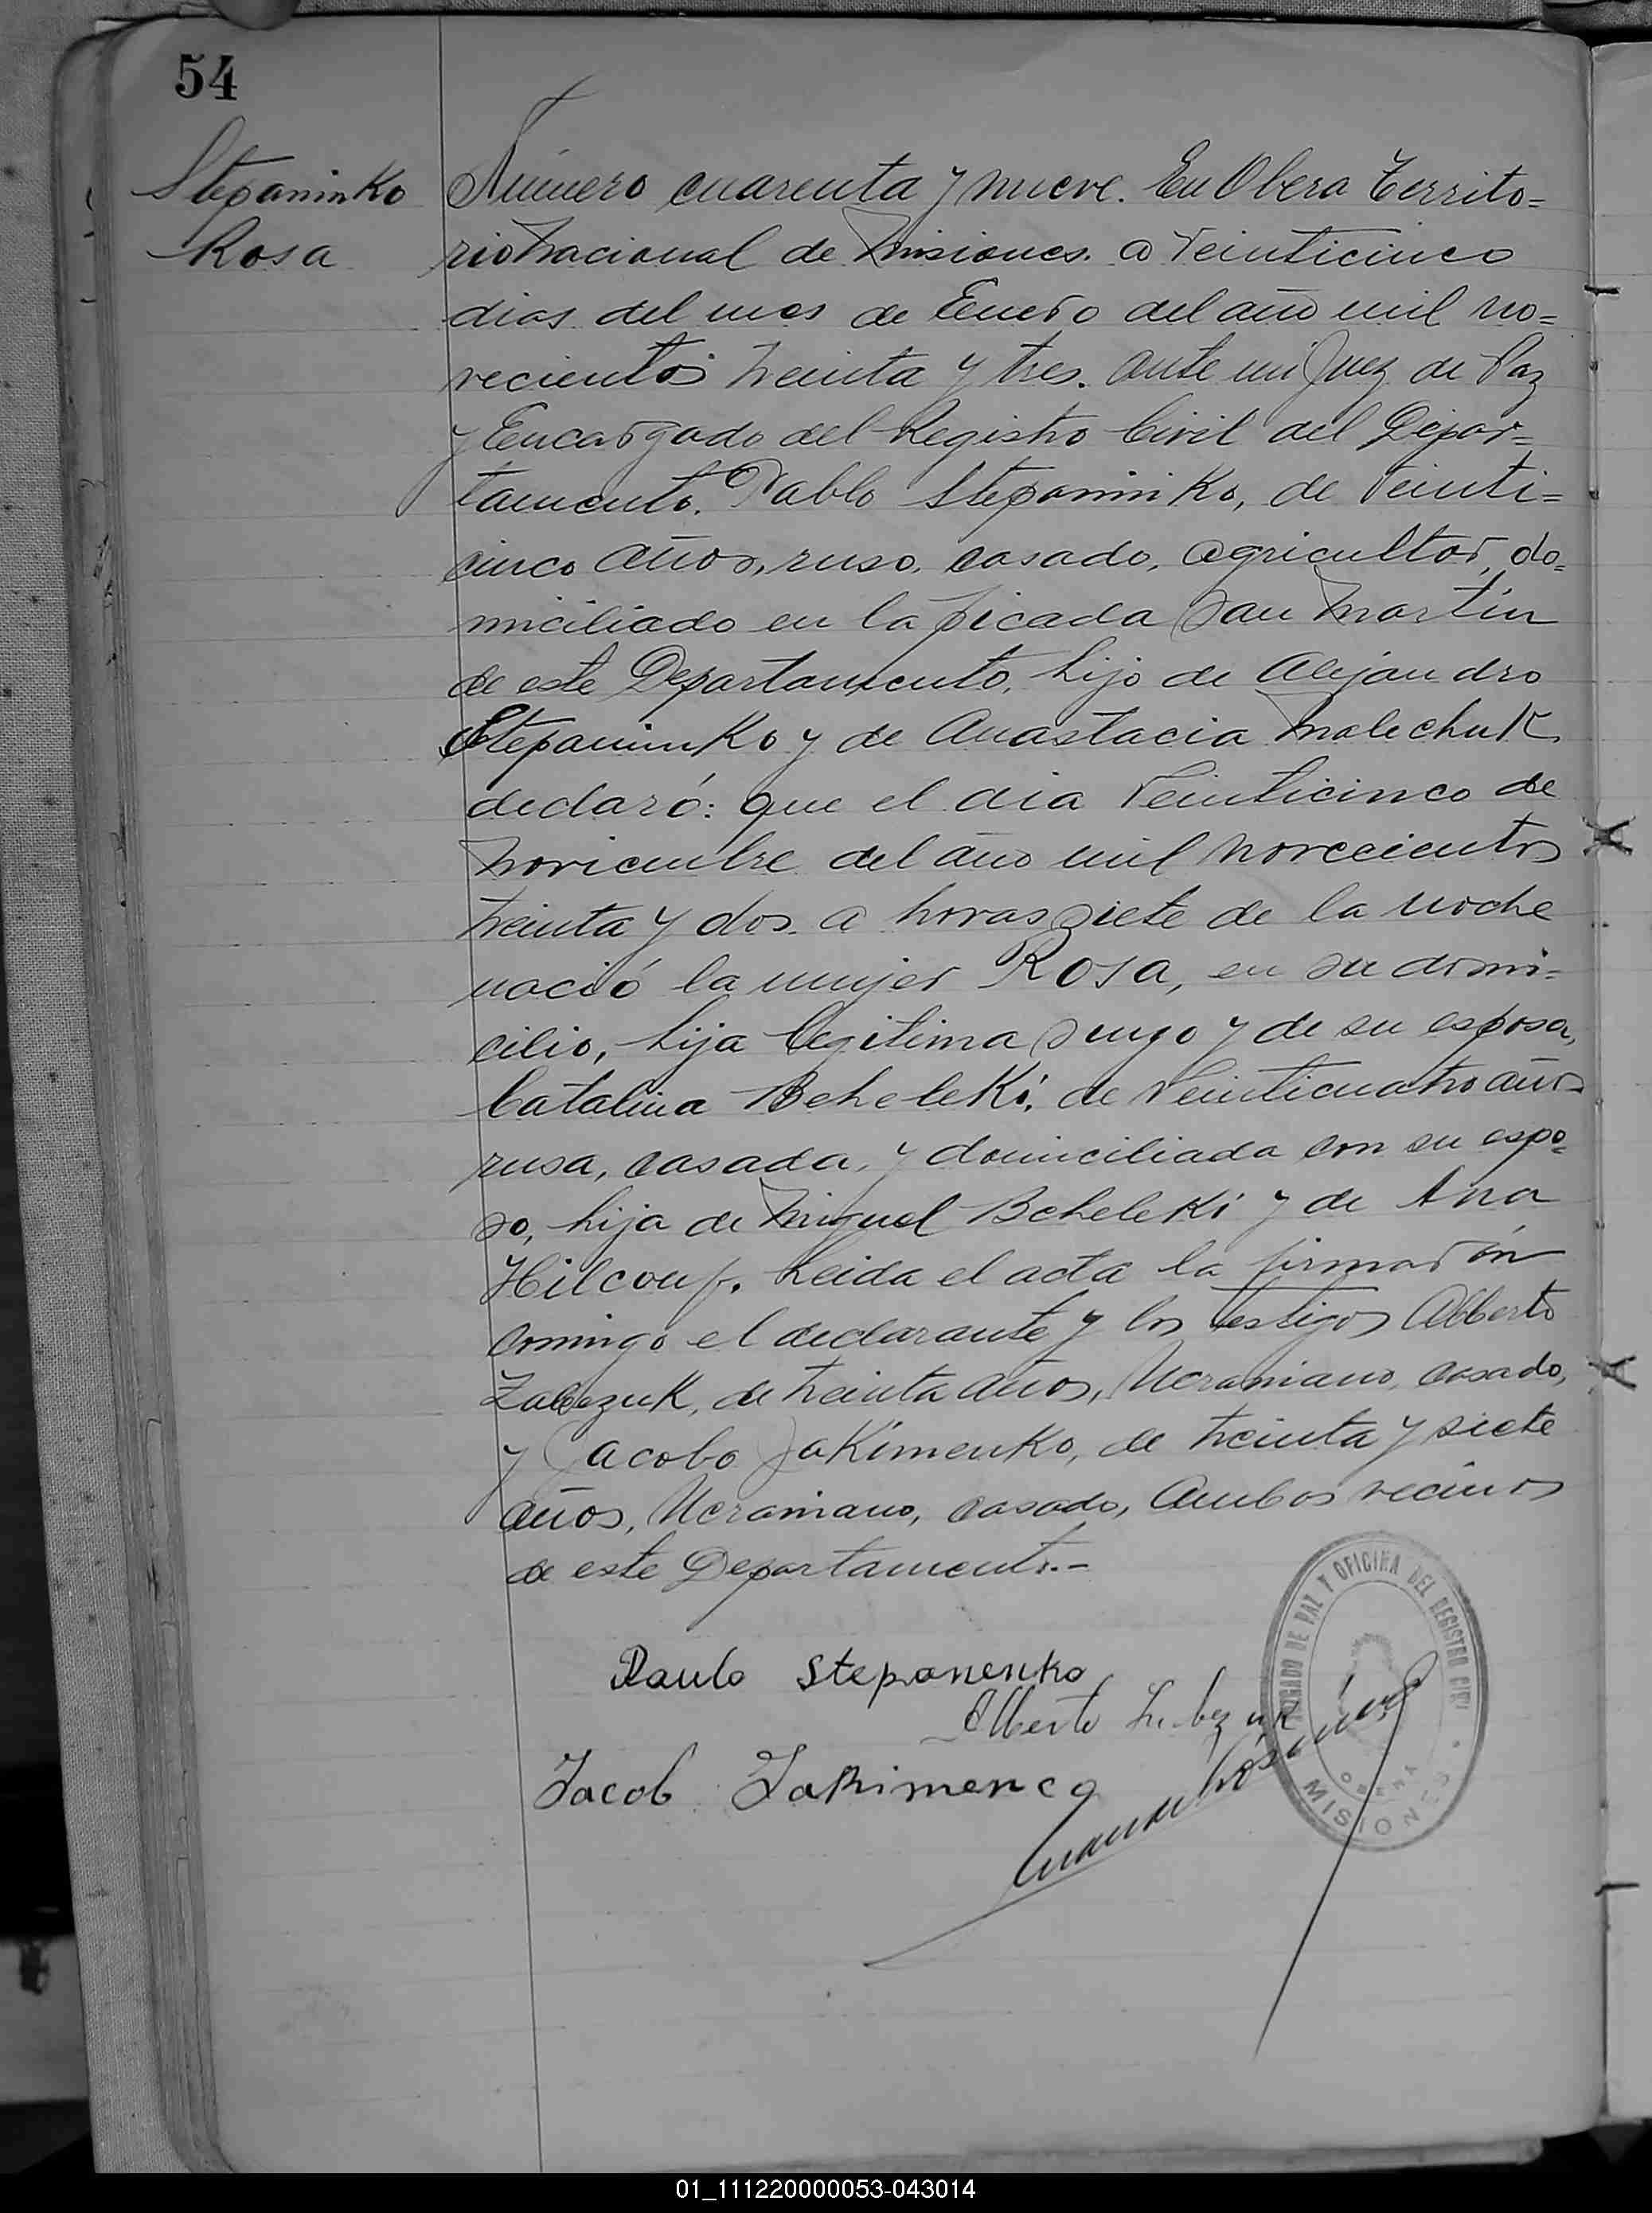 54
Stepaninko
Rosa
Número cuarenta y nueve. En Obera Territo=
rio Nacional de Misiones. a veinticinco
dias del mes de Enero del año mil no=
vecientos treinta y tres. ante mi Juez de Paz
y Encargado del Registro Civil del Depar=
tamento. Pablo Stepaninko, de veinti=
cinco años, ruso, casado, agricultor, do=
miciliado en la picada San Martín
de este Departamento, hijo de Alejandro
Stepaninko y de Anastacia Malechuk
declaró: que el dia veinticinco de
Noviembre del año mil novecientos
treinta y dos. a horas siete de la noche
nació la mujer Rosa, en su domi=
cilio, hija legitima suya y de su esposa,
Catalina Beheleki, de veinticuatro años
rusa, casada, y domiciliada con su espo=
so, hija de Miguel Beheleki y de Ana
Hilcouf. Leida el acta la firmarón
conmigo el declarante y los testigos Alberto
de treinta años, Ucraniano, casado,
y Jacobo Jakimenko, de treinta y siete
años, Ucraniano, casado, Ambos vecinos
de este Departamento.-
Paulo Stepanenko
Alberto
Jacob Jakimenco
JUZGADO DE PAZ Y OFICINA DEL REGISTRO CIVIL
OBERA
MISIONES
01_111220000053-043014